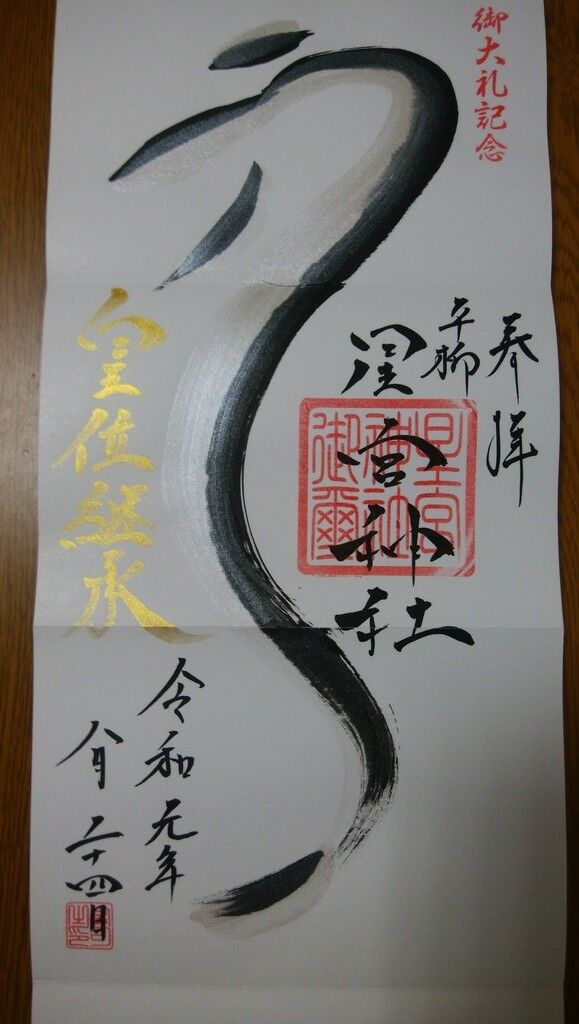 御大礼記念
奉拝
平柳
星宮神社
星宮神社御璽
皇位継承
令和元年
八月二十四日